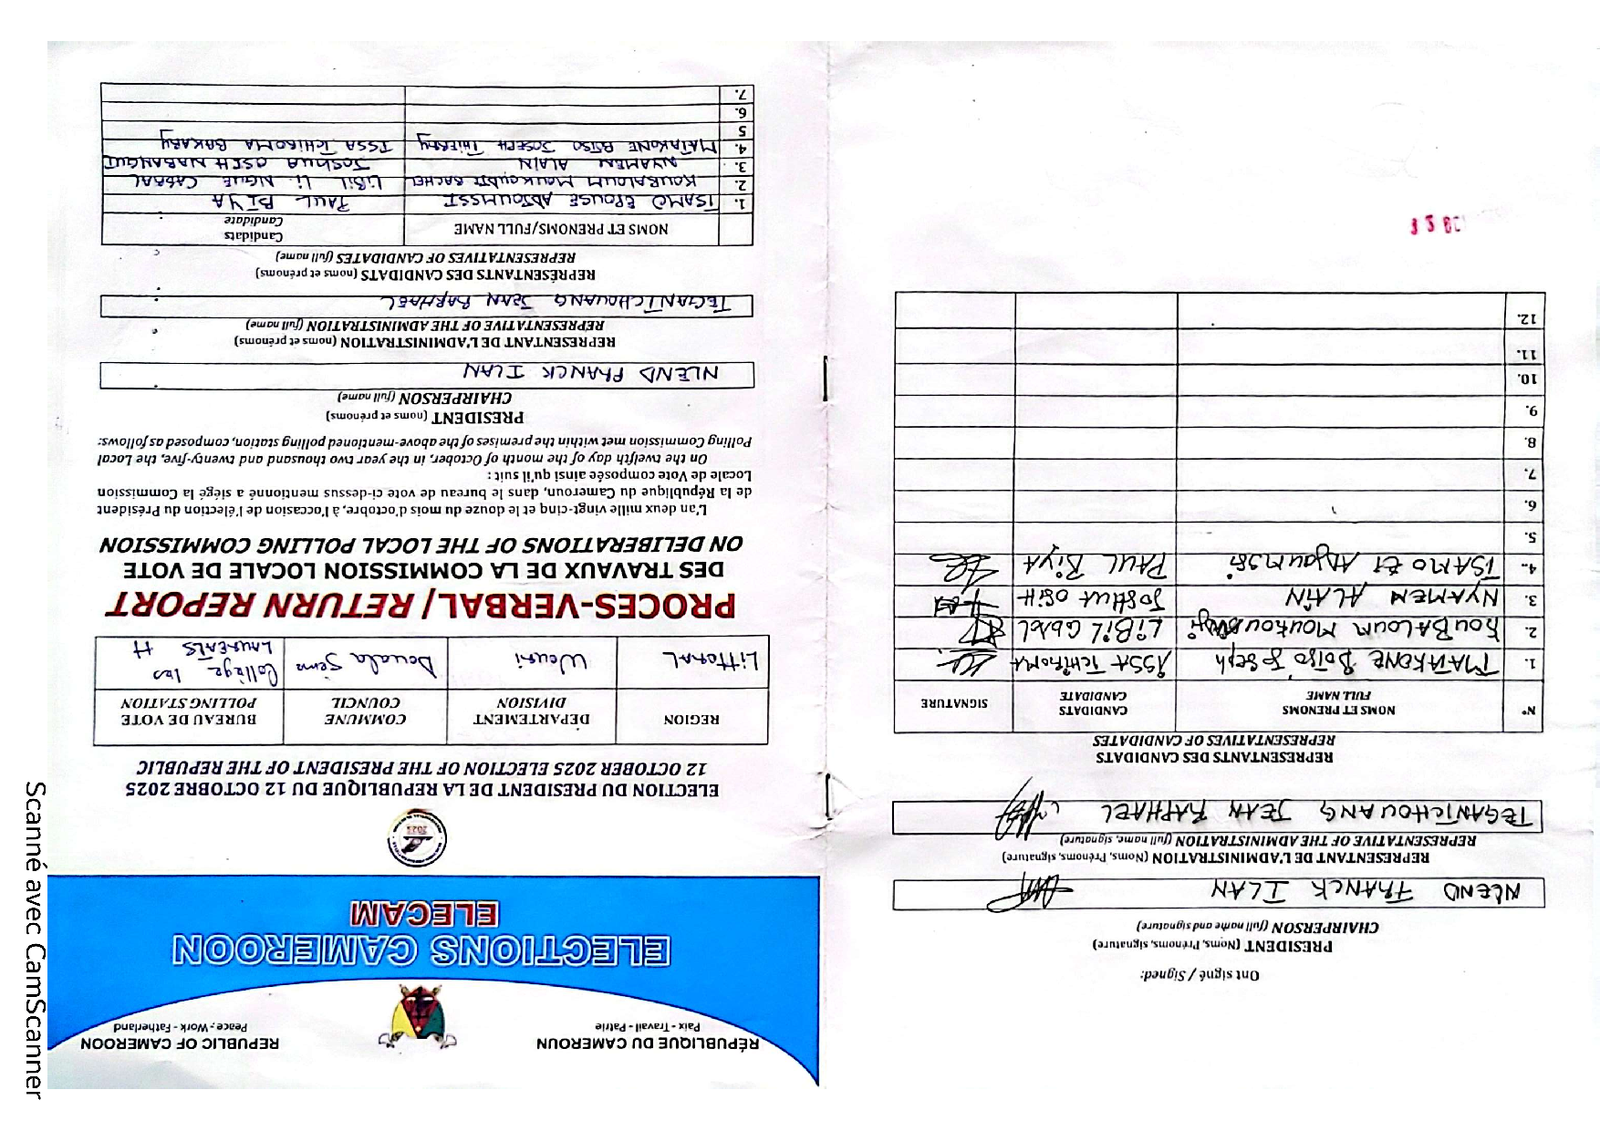 RÉPUBLIQUE DU CAMEROUN
Paix - Travail - Patrie
REPUBLIC OF CAMEROON
Peace - Work - Fatherland
ELECTIONS CAMEROON
ELECAM
ELECTION DU PRESIDENT DE LA REPUBLIQUE DU 12 OCTOBRE 2025
12 OCTOBER 2025 ELECTION OF THE PRESIDENT OF THE REPUBLIC
REGION
DÉPARTEMENT
DIVISION
COMMUNE
COUNCIL
BUREAU DE VOTE
POLLING STATION
LITTORAL
Wouri
Douala 5eme
Collège les
LAUREALS H
PROCES-VERBAL / RETURN REPORT
DES TRAVAUX DE LA COMMISSION LOCALE DE VOTE
ON DELIBERATIONS OF THE LOCAL POLLING COMMISSION
L'an deux mille vingt-cinq et le douze du mois d'octobre, à l'occasion de l'élection du Président
de la République du Cameroun, dans le bureau de vote ci-dessus mentionné a siégé la Commission
Locale de Vote composée ainsi qu'il suit :
On the twelfth day of the month of October, in the year two thousand and twenty-five, the Local
Polling Commission met within the premises of the above-mentioned polling station, composed as follows:
PRESIDENT (noms et prénoms)
CHAIRPERSON (full name)
NLEND FRANCK ILAN
REPRÉSENTANT DE L'ADMINISTRATION (noms et prénoms)
REPRESENTATIVE OF THE ADMINISTRATION (full name)
TEGANTCHOUANG JEAN RAPHAEL
REPRÉSENTANTS DES CANDIDATS (noms et prénoms)
REPRESENTATIVES OF CANDIDATES (full name)
NOMS ET PRENOMS/FULL NAME
Candidats
Candidate
1. TSAMO EPOUSE ADJOUMSSI PAUL BIYA
2. KOUBALOUM MOUKOUDTI RACHEL LIBII LI NGUE CABRAL
3. NYAMEN ALAIN JOSHUA OSIH NABANGUI
4. MATAKONE BOTSO JOSEPH THIERRY ISSA TCHIROMA BAKARY
5
6.
7.
Ont signé / Signed:
PRESIDENT (Noms, Prénoms, signature)
CHAIRPERSON (full name and signature)
NLEND FRANCK ILAN
REPRESENTANT DE L'ADMINISTRATION (Noms, Prénoms, signature)
REPRESENTATIVE OF THE ADMINISTRATION (full name, signature)
TEGANTCHOUANG JEAN RAPHAEL
REPRÉSENTANTS DES CANDIDATS
REPRESENTATIVES OF CANDIDATES
N°
NOMS ET PRENOMS
FULL NAME
CANDIDATS
CANDIDATE
SIGNATURE
1. MATAKONE BOTSO Joseph ISSA TCHIROMA
2. KOUBALOUM LIBII
3. NYAMEN ALAIN JOSHUA OSIH
4. TSAMO PAUL BIYA
5.
6.
7.
8.
9.
10.
11.
12.
Scanné avec CamScanner